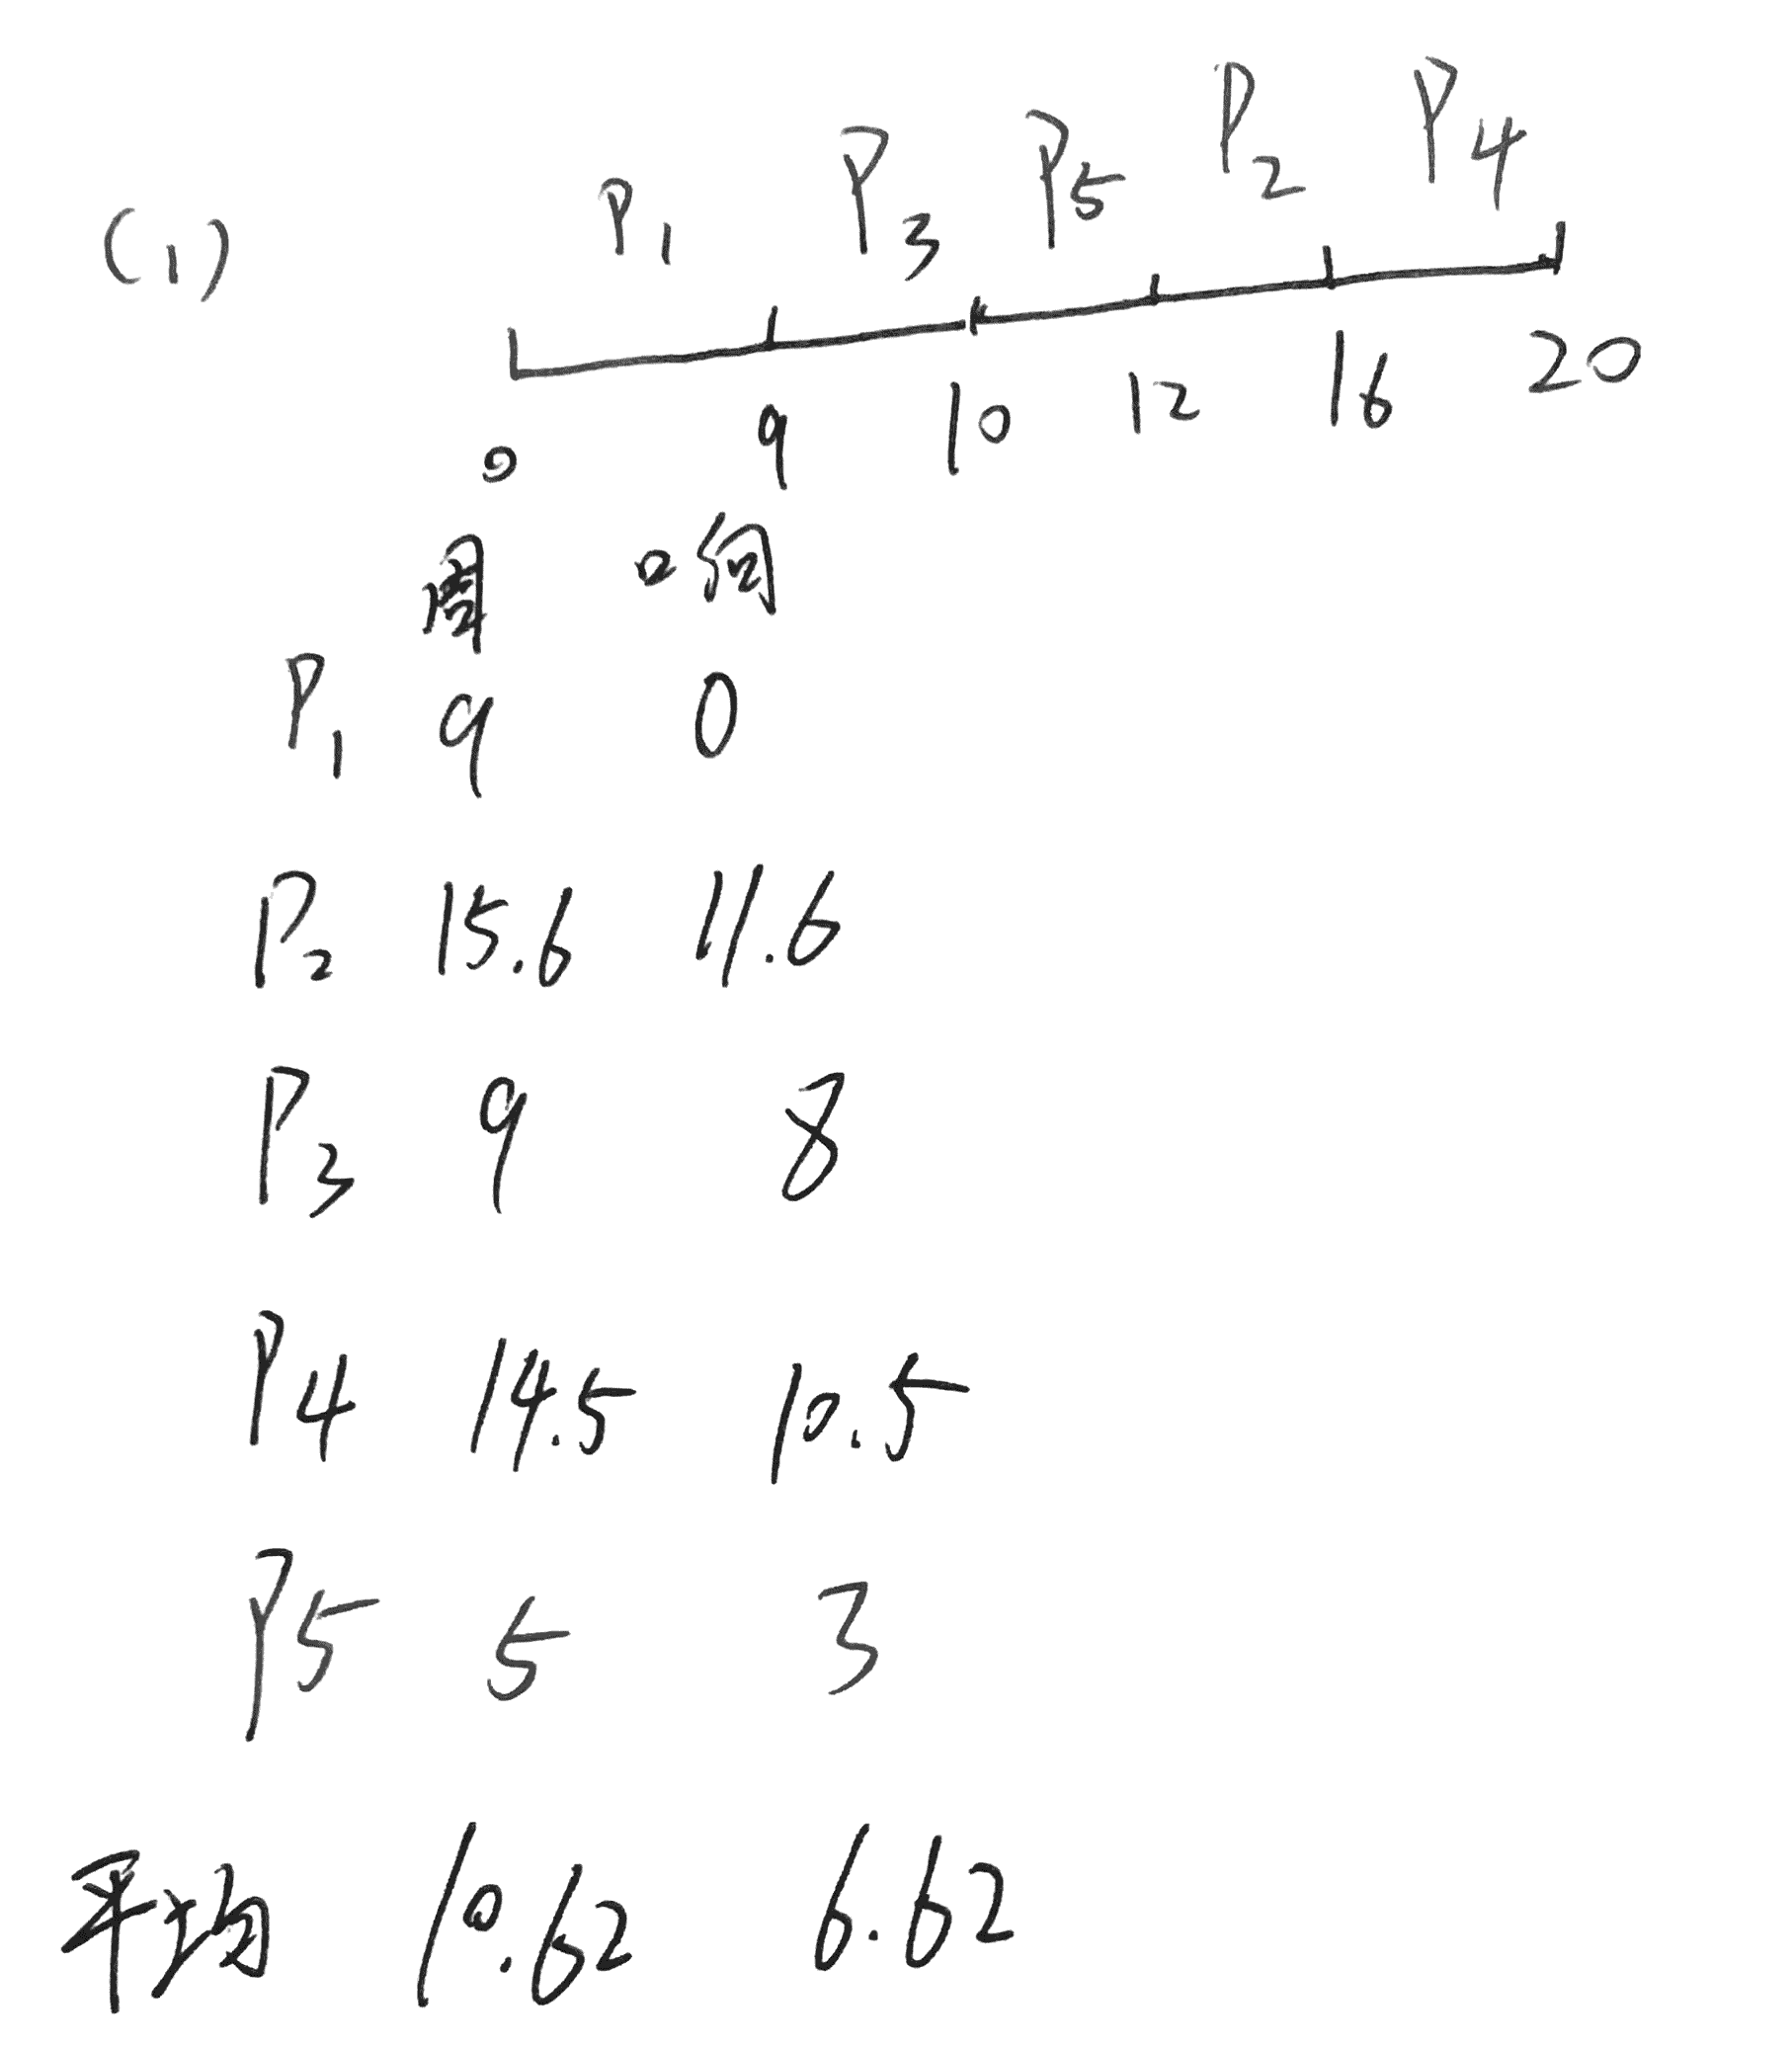 (1) P1 P3 P5 P2 P4
0 9 10 12 16 20
周 响
P1 9 0
P2 15.6 11.6
P3 9 8
P4 14.5 10.5
P5 5 3
平均 10.62 6.62